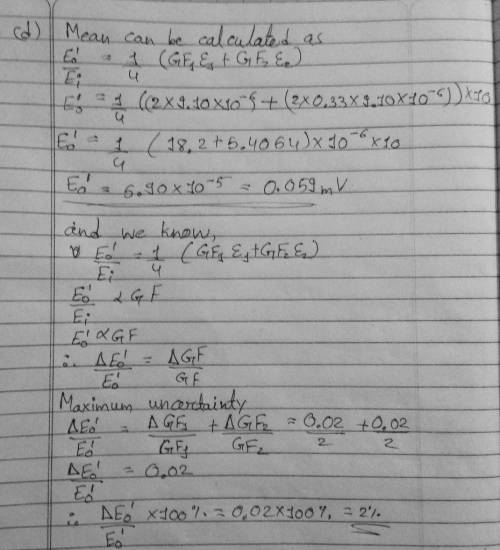 (d) Mean can be calculated as
E₀'/Eᵢ = 1/4 (GF₁ε₁ + GF₂ε₂)
E₀' = 1/4 ((2×9.10×10⁻⁶) + (2×0.33×9.10×10⁻⁶))×10
E₀' = 1/4 (18.2+5.4054)×10⁻⁶×10
E₀' = 5.90×10⁻⁵ = 0.059mV
and we know,
E₀'/Eᵢ = 1/4 (GF₁ε₁+GF₂ε₂)
E₀'/Eᵢ ∝ GF
E₀' ∝ GF
∴ ΔE₀'/E₀' = ΔGF/GF
Maximum uncertainty
ΔE₀'/E₀' = ΔGF₁/GF₁ + ΔGF₂/GF₂ = 0.02/2 + 0.02/2
ΔE₀'/E₀' = 0.02
∴ ΔE₀'/E₀' ×100% = 0.02×100% = 2%